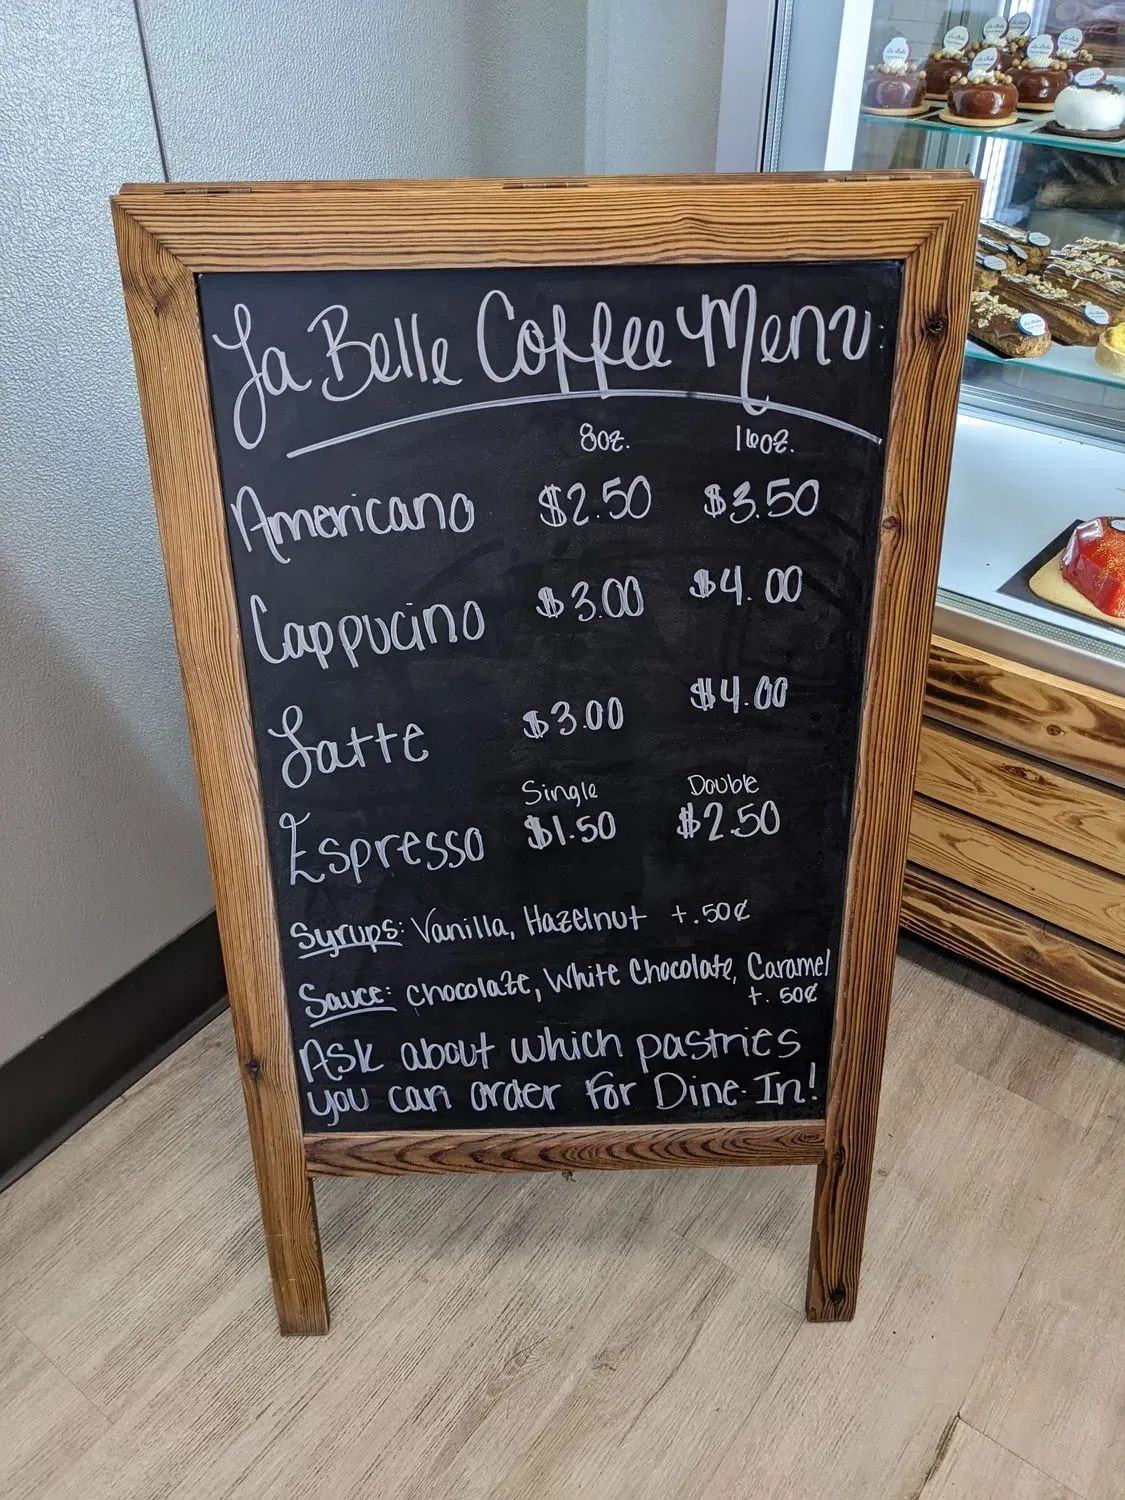 La Belle Coffee Menu:
8oz. 16oz.
Americano $2.50 $3.50
Cappucino $3.00 $4.00
Latte $3.00 $4.00
Single Double
Espresso $1.50 $2.50
Syrups: Vanilla, Hazelnut +.50¢
Sauce: Chocolate, White Chocolate, Caramel
+.50¢
Ask about which pastries
you can order for Dine-In!